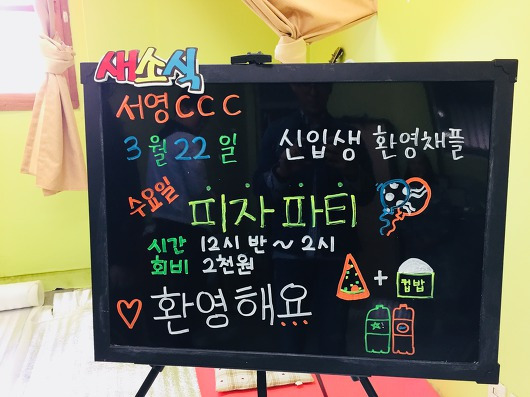 새소식
서영 CCC
3월 22일 신입생 환영채플
수요일 피자 파티
시간 12시 반 ~ 2시
회비 2천원
+ 컵밥
♡ 환영해요...